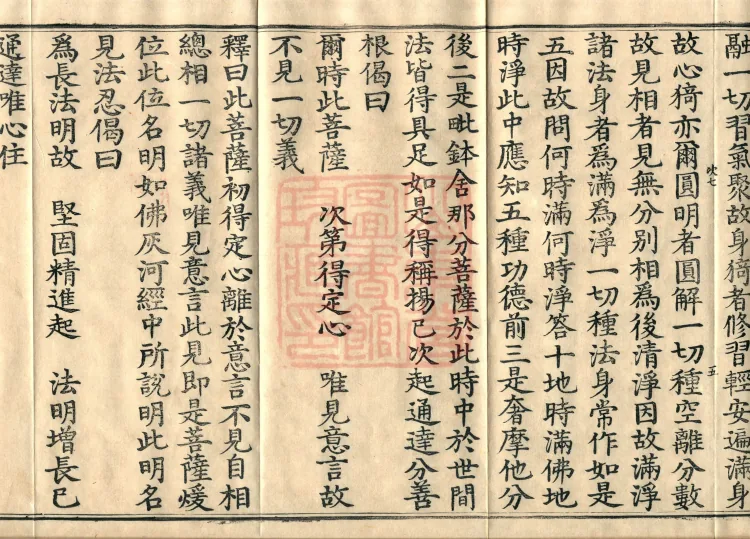 融一切習氣聚故身猗者修習輕安遍滿身
故心猗亦爾圓明者圓解一切種空離分數
故見相者見無分別相為後清淨因故滿淨
諸法身者為滿為淨一切種法身常作如是
五因故問何時滿何時淨答十地時滿佛地
時淨此中應知五種功德前三是奢摩他分
後二是毗鉢舍那分菩薩於此時中於世間
法皆得具足如是得稱揚已次起通達分善
根偈曰
爾時此菩薩　次第得定心　唯見意言故
不見一切義
釋曰此菩薩初得定心離於意言不見自相
總相一切諸義唯見意言此見即是菩薩煖
位此位名明如佛灰河經中所說明此明名
見法忍偈曰
為長法明故　堅固精進起　法明增長已
通達唯心住
五